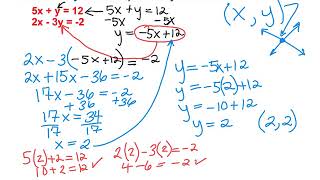 5x + y = 12
2x - 3y = -2
5x + y = 12
-5x -5x
y = -5x+12
(x, y)
2x - 3(-5x+12) = -2
2x + 15x - 36 = -2
17x - 36 = -2
+36 +36
17x = 34
17 17
x = 2
y = -5x+12
y = -5(2)+12
y = -10+12
y = 2
(2,2)
5(2)+2=12 ✓
10+2=12 ✓
2(2)-3(2)=-2
4-6=-2 ✓